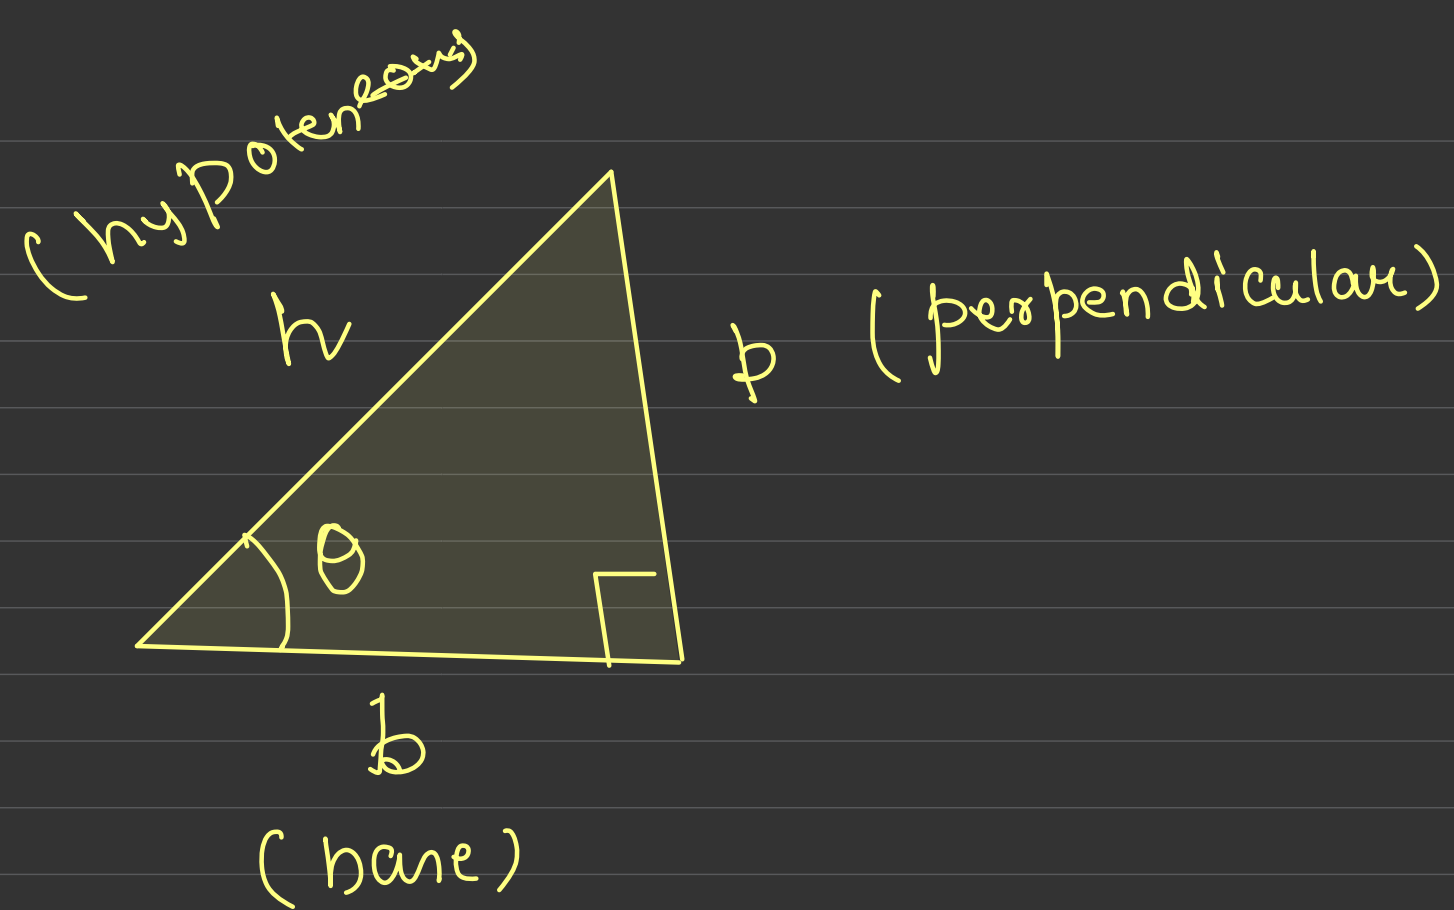 (hypoteneous)
h
p (perpendicular)
θ
b
(base)